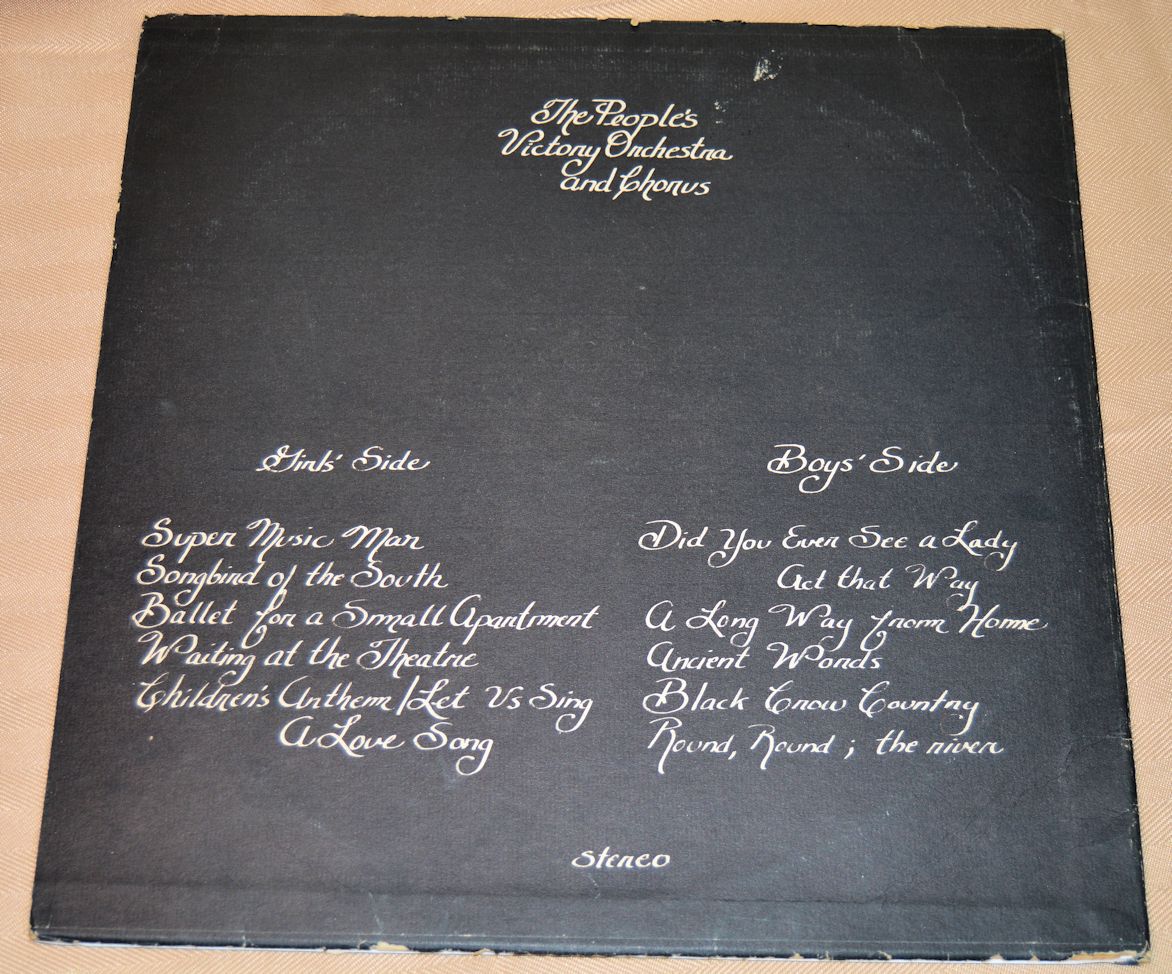 The People's
Victory Orchestra
and Chorus
Girls' Side
Super Music Man
Songbird of the South
Ballet for a Small Apartment
Waiting at the Theatre
Children's Anthem/Let Us Sing
A Love Song
Boys' Side
Did You Ever See a Lady
Act that Way
A Long Way from Home
Ancient Words
Black Crow Country
Round, Round ; the river
stereo